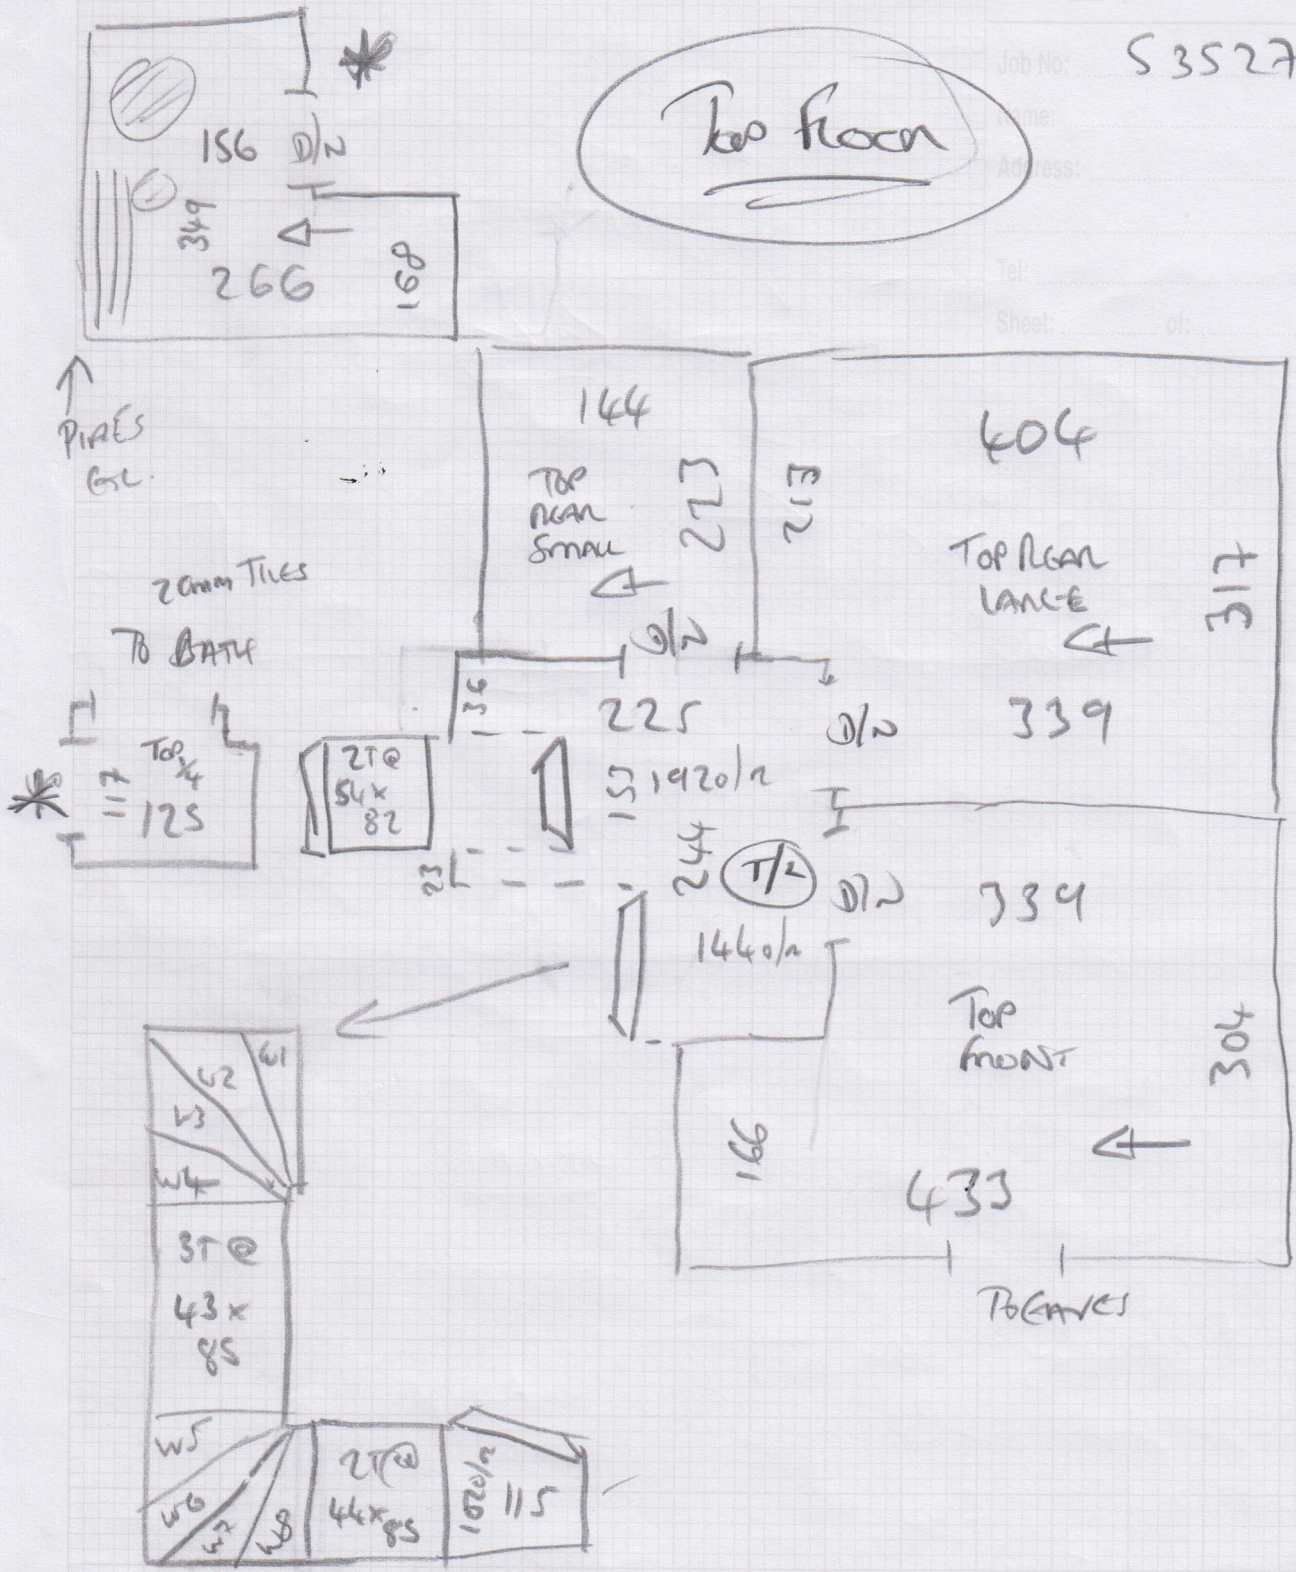 Job No: S3527
Name:
Address:
Tel:
Sheet: of:
Top Floor
156 D/N
349
266
168
PIPES
ETC.
144
TOP
REAR
SMALL
223
D/N
213
404
TOP REAR
LARGE
317
339
D/N
20mm TILES
TO BATH
36
225
TOP 1/4
117
125
2T@
54x
82
153
192o/n
23
244
T/2
D/N
339
144o/n
TOP
FRONT
304
166
433
TO EAVES
W1
W2
W3
W4
3T@
43x
85
W5
W6
W7
W8
2T@
44x85
102o/n
115